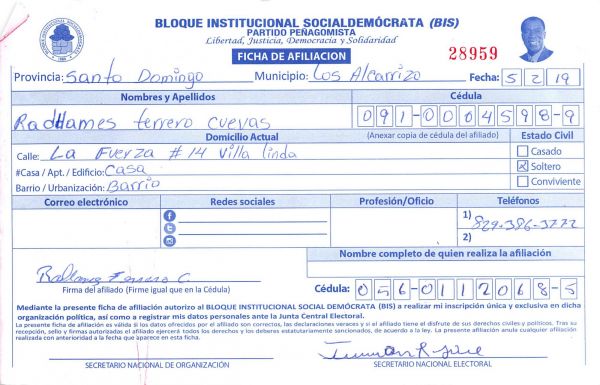 BLOQUE INSTITUCIONAL SOCIALDEMÓCRATA (BIS)
PARTIDO PEÑAGOMISTA
Libertad, Justicia, Democracia y Solidaridad
FICHA DE AFILIACION
28959
Provincia: Santo Domingo Municipio: Los Alcarrizo Fecha: 5 2 19
Nombres y Apellidos Cédula
Radhames ferrero cuevas 091-0004598-9
Domicilio Actual (Anexar copia de cédula del afiliado) Estado Civil
Calle: La Fuerza # 14 Villa linda Casado
#Casa / Apt. / Edificio: casa Soltero
Barrio / Urbanización: Barrio Conviviente
Correo electrónico Redes sociales Profesión/Oficio Teléfonos
1) 829-386-3772
2)
Nombre completo de quien realiza la afiliación
Firma del afiliado (Firme igual que en la Cédula) Cédula: 056-0112068-5
Mediante la presente ficha de afiliación autorizo al BLOQUE INSTITUCIONAL SOCIAL DEMÓCRATA (BIS) a realizar mi inscripción única y exclusiva en dicha
organización política, así como a registrar mis datos personales ante la Junta Central Electoral.
La presente ficha de afiliación es válida si los datos ofrecidos por el afiliado son correctos, las declaraciones veraces y si el afiliado tiene el disfrute de sus derechos civiles y políticos. Tras su
recepción, sello y firmas autorizadas el afiliado ejercerá todos los derechos y los deberes estatutariamente sancionados, de acuerdo a la ley. La presente afiliación anula cualquier afiliación
realizada con anterioridad a la fecha que aparece en esta ficha.
SECRETARIO NACIONAL DE ORGANIZACIÓN SECRETARIO NACIONAL ELECTORAL